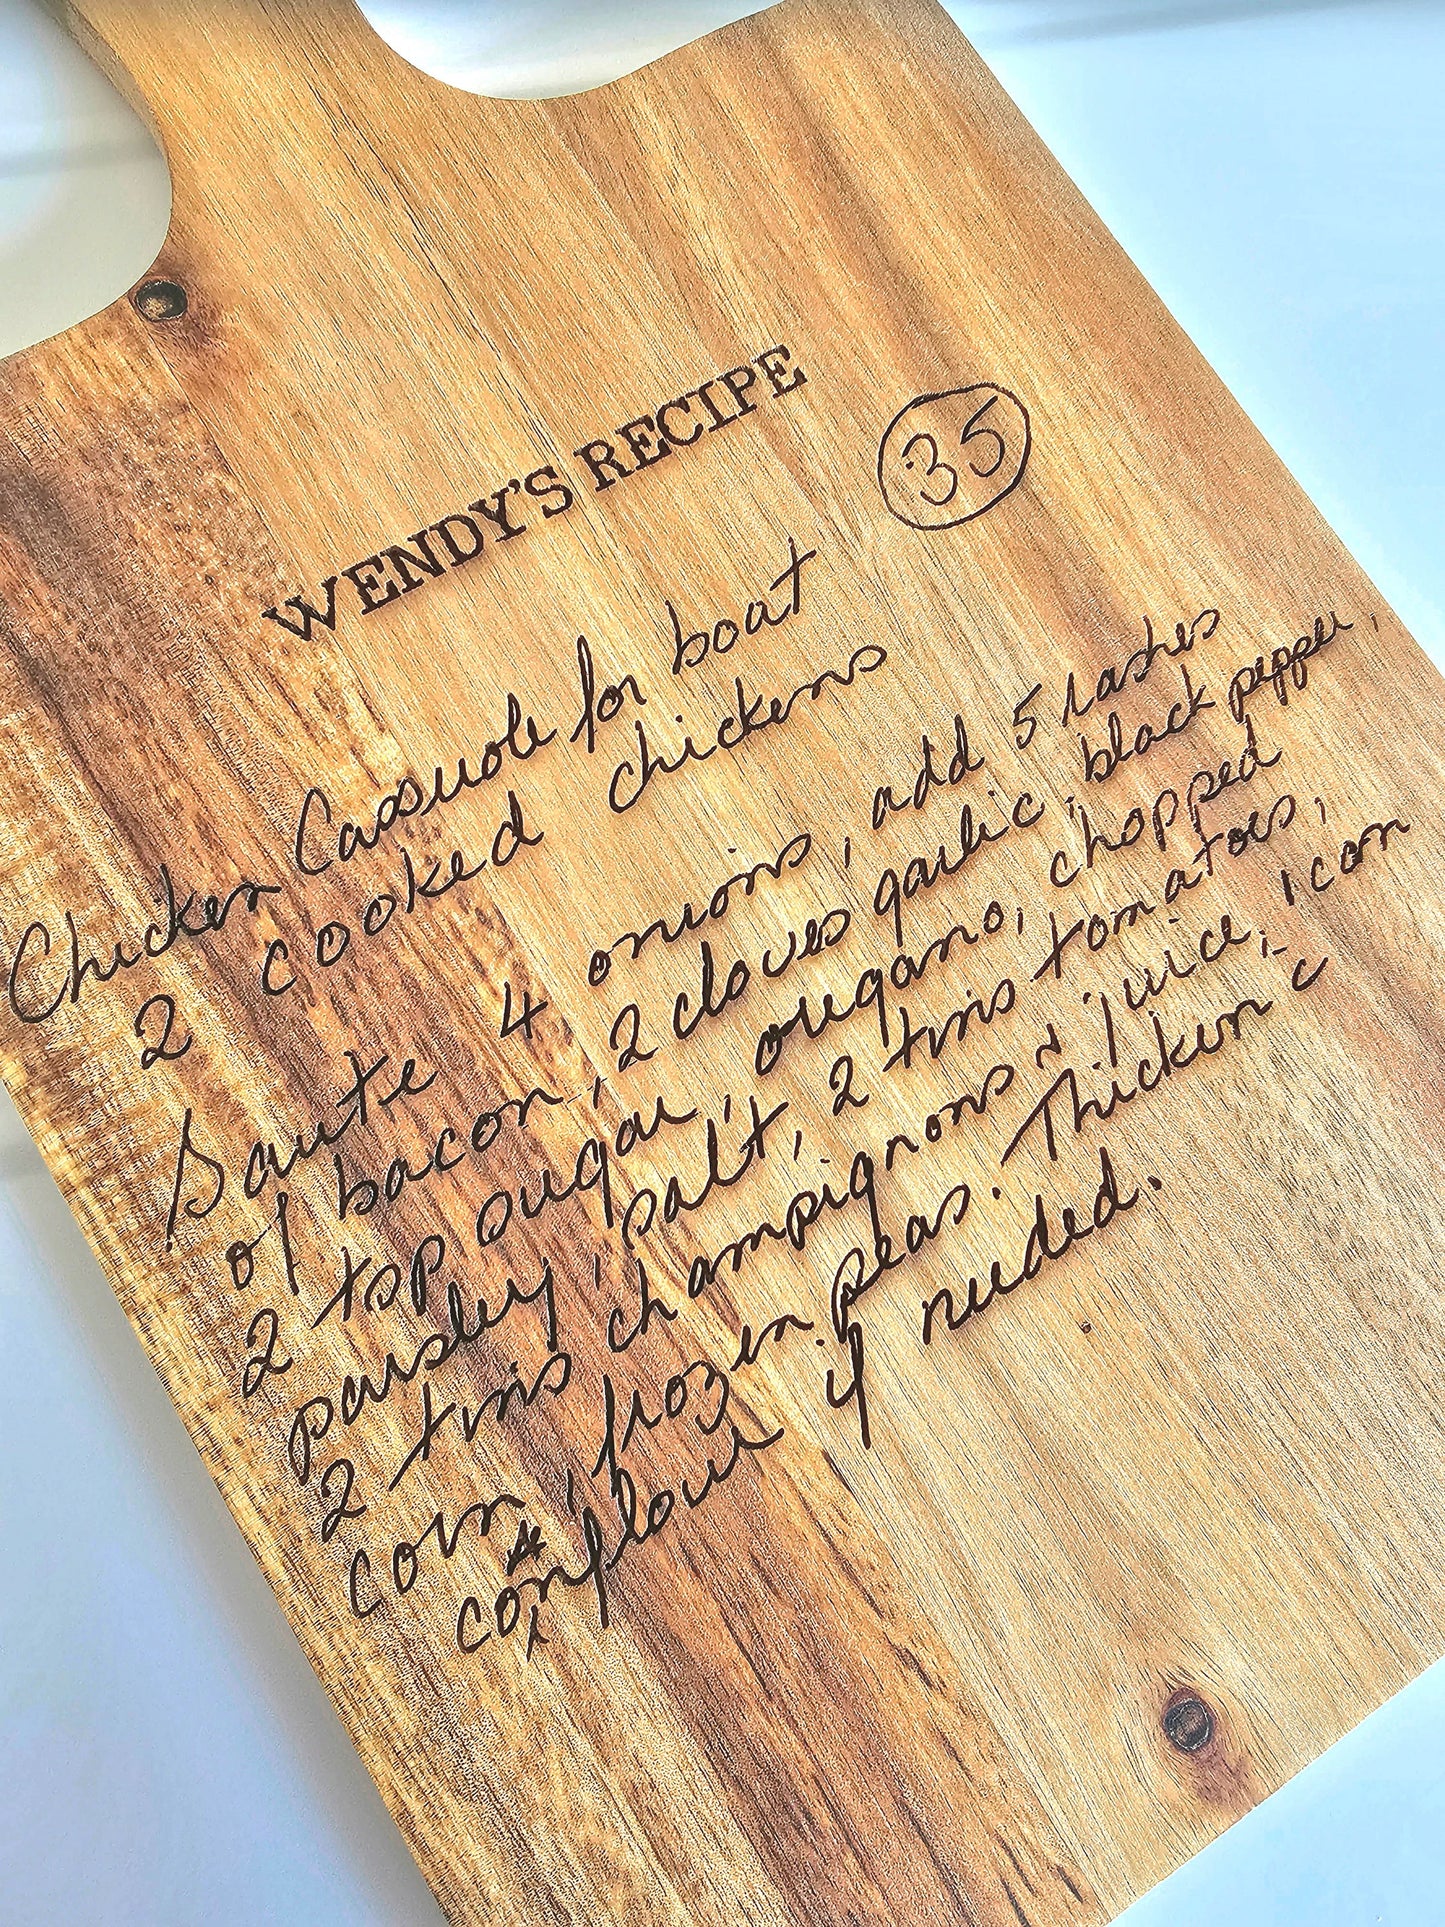 WENDY'S RECIPE
35
Chicken Casserole for boat
2 cooked chickens
Saute 4 onions, add 5 rashes
of bacon, 2 cloves garlic, black pepper,
2 tsp sugar, oregano, chopped
parsley, salt, 2 tins tomatoes,
2 tins champignons & juice, 1 corn
corn, frozen peas. Thicken c
cornflour if needed.